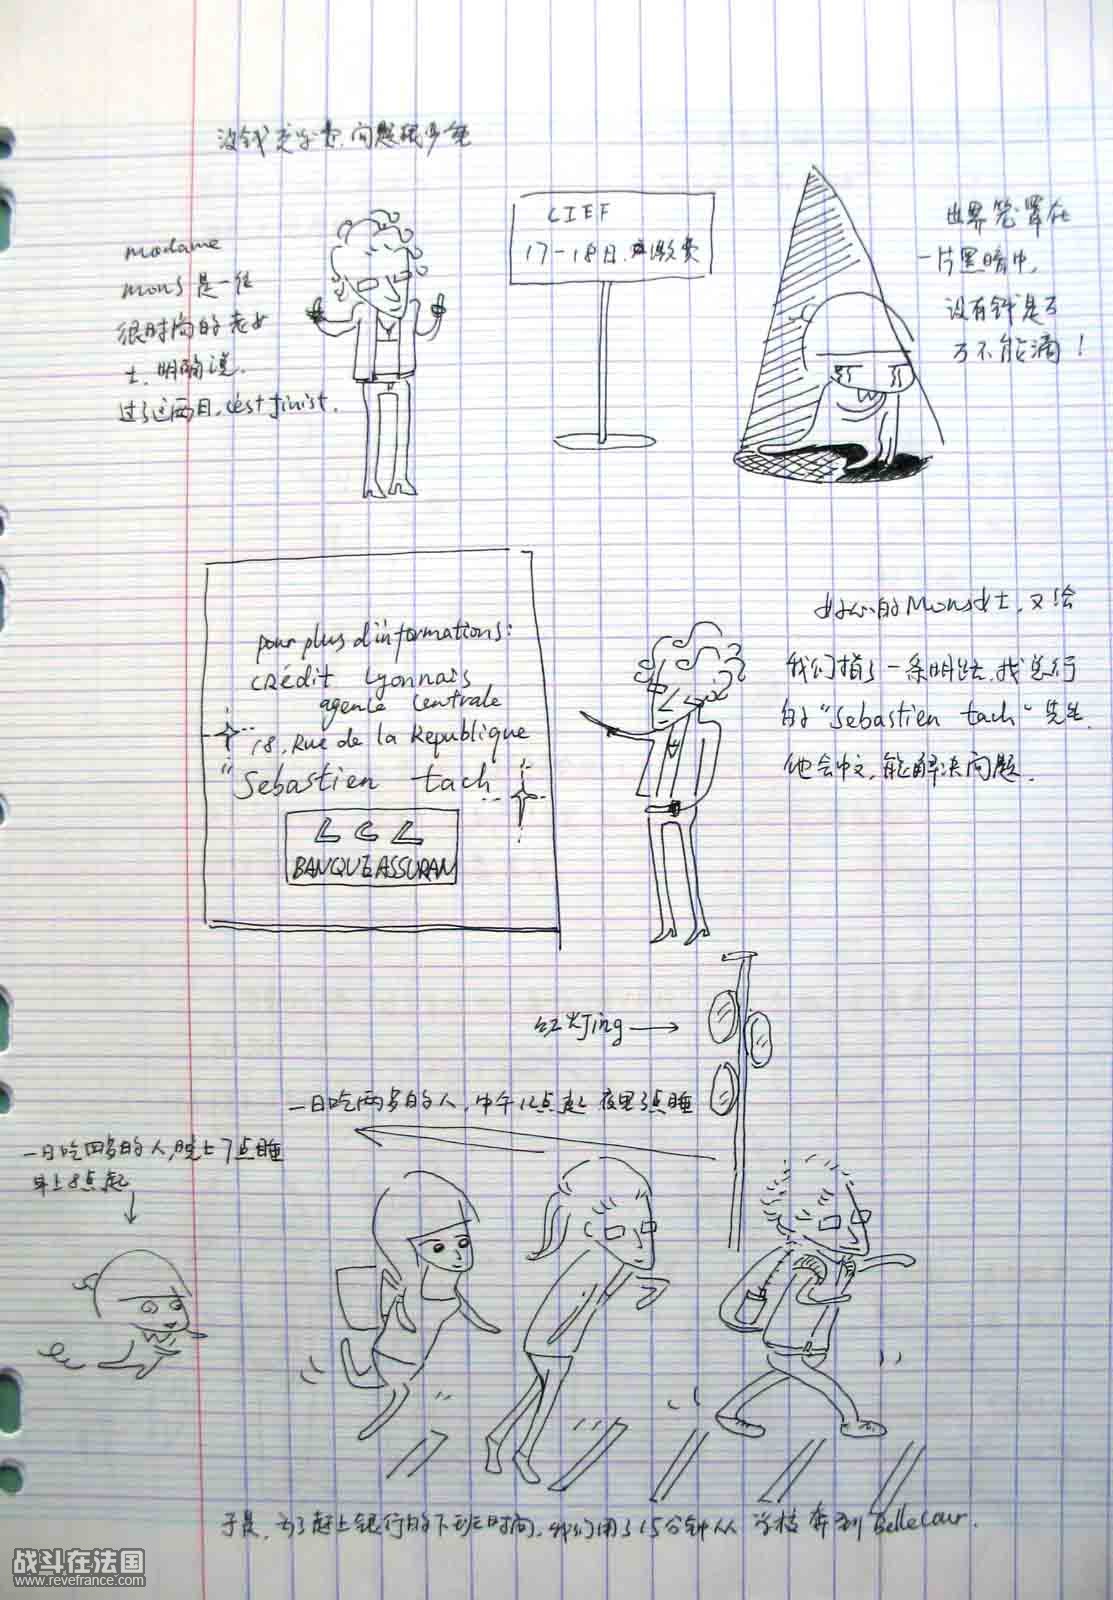 没钱交学费,问题很严重
modame
mons是一位
很时尚的老女
士,明确说,
过了这两日,c'est finist.
CIEF
17-18日,缴费
世界笼罩在
一片黑暗中,
没有钱是万
万不能滴!
pour plus d'informations:
crédit Lyonnais
agence centrale
18, Rue de la Republique
"Sebastien tach"
LCL
BANQUE ASSURAN
好心的Mons女士,又给
我们指了一条明路,找总行
的"Sebastien tach"先生.
他会中文,能解决问题.
红火Jing
一日吃两多的人,中午12点起 夜里3点睡
一日吃四多的人,晚上7点睡
早上8点起
于是,为了赶上银行的下班时间,我们用了15分钟从 学校奔到Bellecour.
战斗在法国
www.revefrance.com